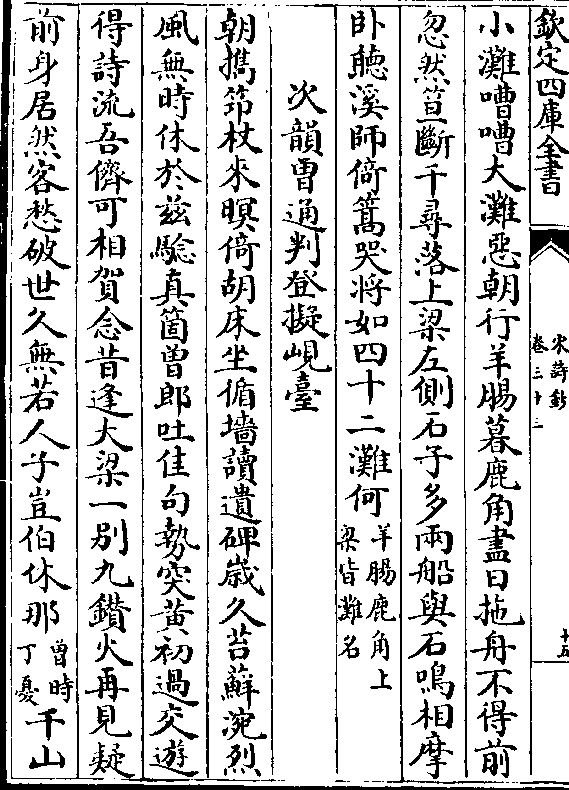 欽定四庫全書
宋詩鈔
卷三十三
十五
小灘嘈嘈大灘惡朝行羊腸暮鹿角盡日拖舟不得前
忽然笪斷千尋落上梁左側石子多兩船與石鳴相摩
卧聽溪師倚篙哭將如四十二灘何羊腸鹿角上
梁皆灘名
次韻曽通判登擬峴臺
朝攜笻杖來暝倚胡床坐循墻讀遺碑嵗久苔蘚涴烈
風無時休於兹驗真箇曽郎吐佳句勢突黃初過交遊
得詩流吾儕可相賀念昔逢大梁一别九鑚火再見疑
前身居然客愁破世久無若人子豈伯休那曽時
丁憂千山